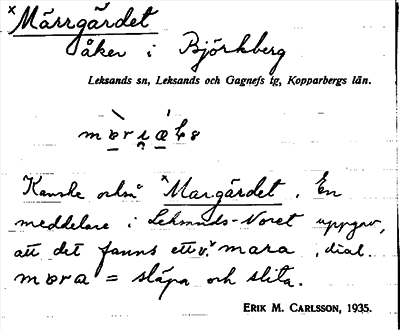 ×Märrgärdet
åker i Björkberg
Leksands sn, Leksands och Gagnefs tg, Kopparbergs län.
Kanske också ×Margärdet. En
meddelare i Leksands-Noret uppgav,
att det fanns ett v. ×mara, dial.
mɒra = släpa och slita.
ERIK M. CARLSSON, 1935.